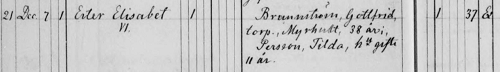 21 Dec. 7 1 Ester Elisabet 1 Brunnström, Gottfrid, 1 37
VI. torp., Myrhult, 38 år,
Persson, Tilda, h. gifte
11 år.